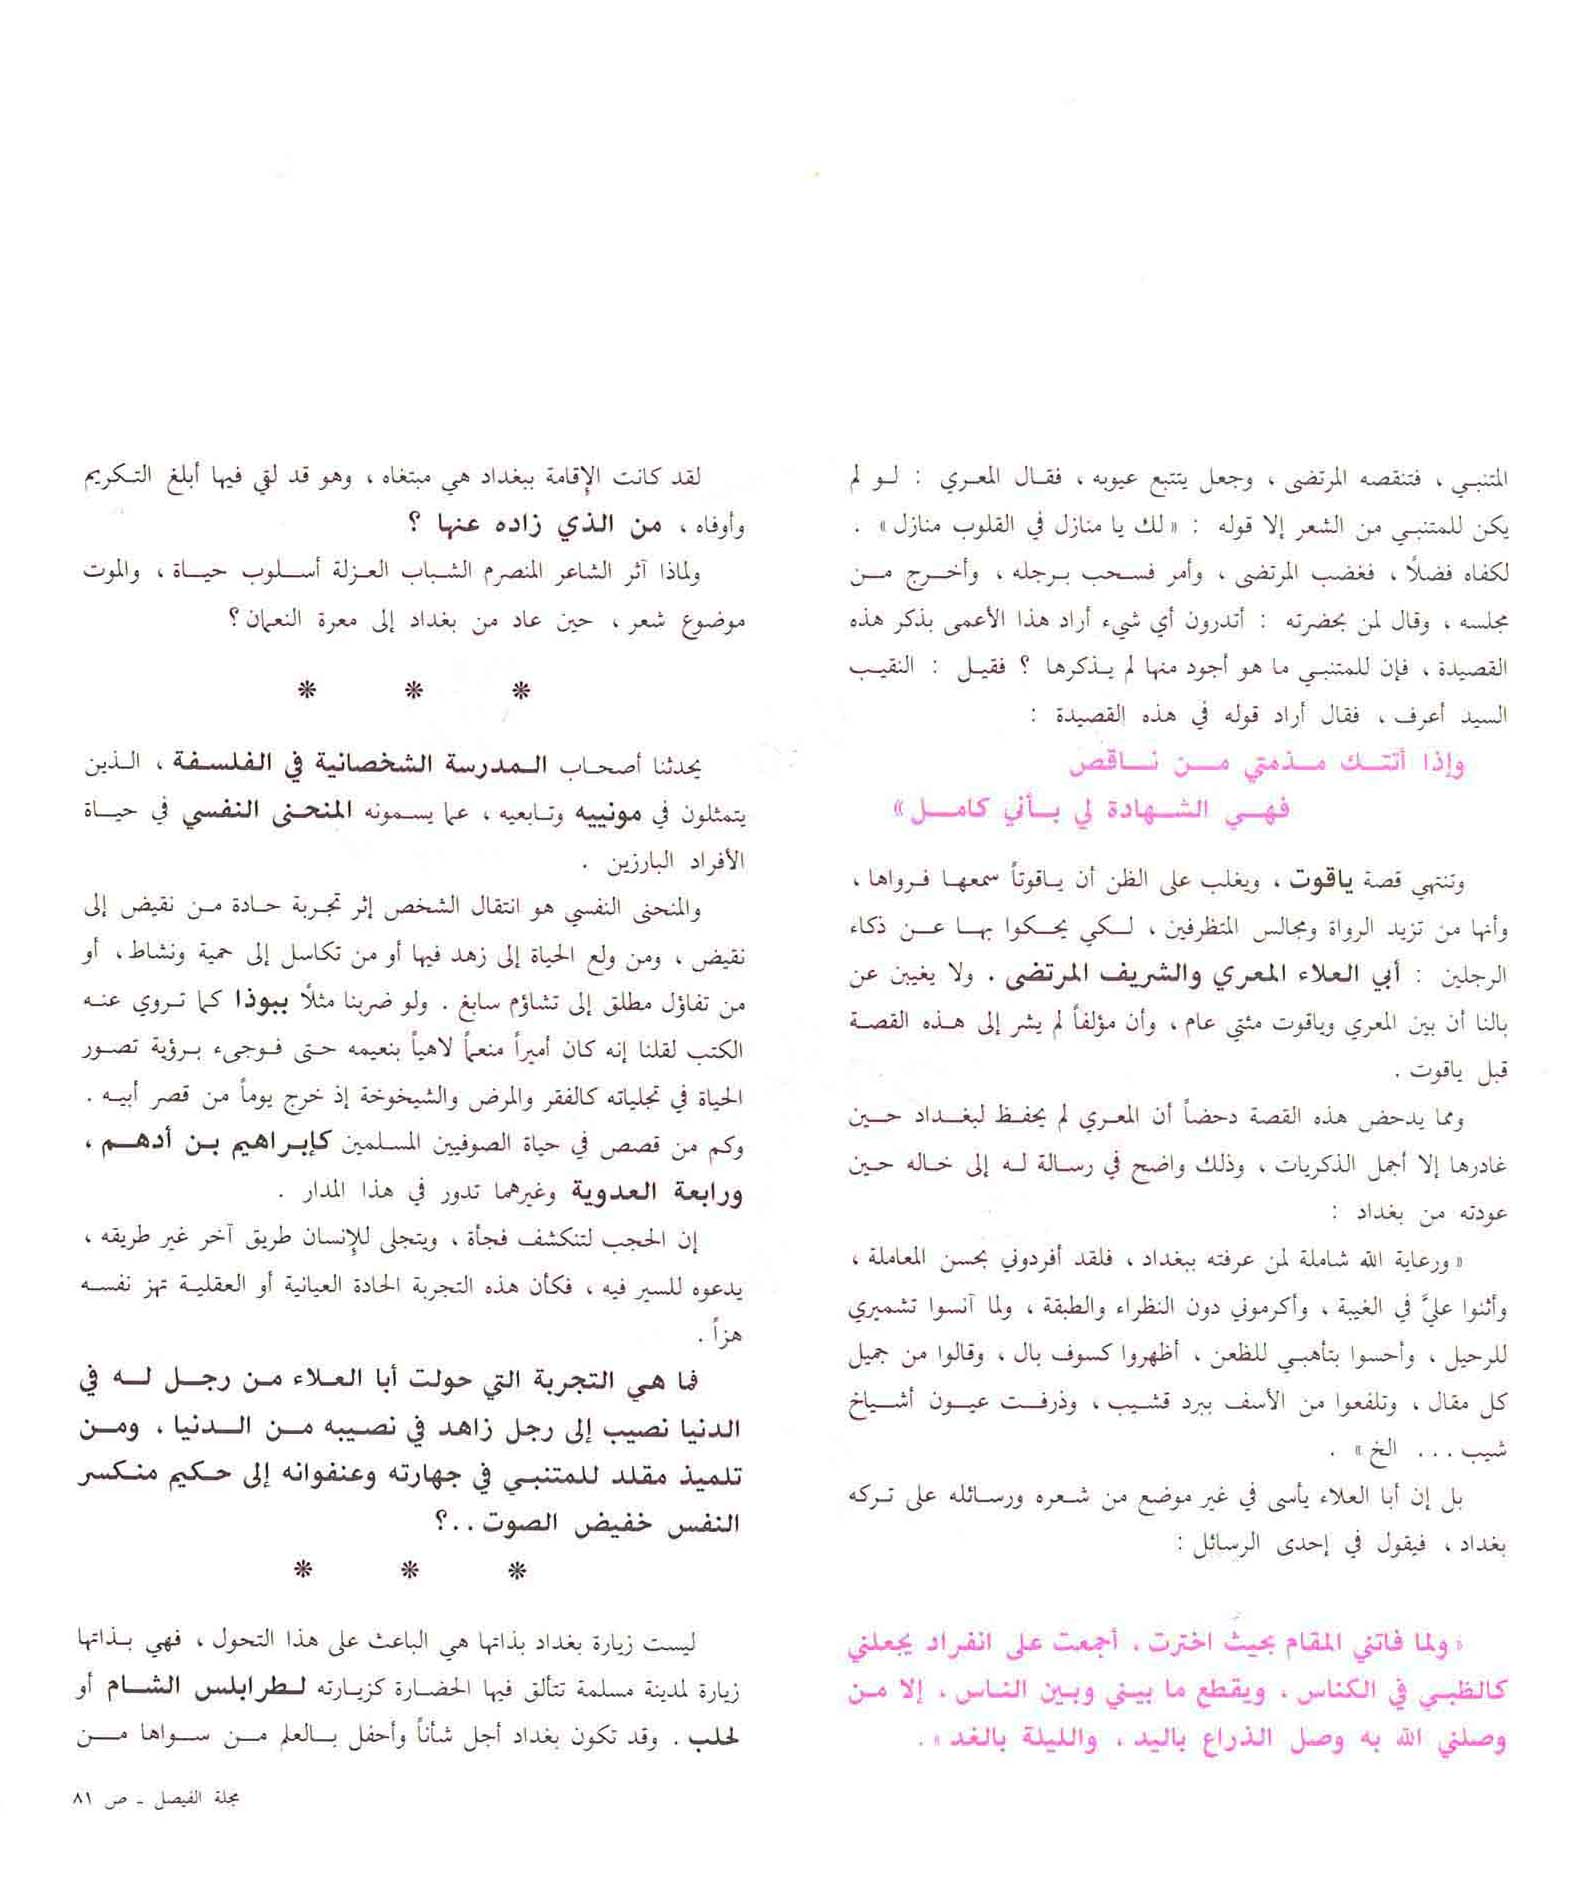 المتنبي ، فتنقصه المرتضى ، وجعل يتتبع عيوبه ، فقال المعري : لو لم
يكن للمتنبي من الشعر إلا قوله : « لك يا منازل في القلوب منازل » .
لكفاه فضلاً ، فغضب المرتضى ، وأمر فسحب برجله ، وأخرج من
مجلسه ، وقال لمن بحضرته : أتدرون أي شيء أراد هذا الأعمى بذكر هذه
القصيدة ، فإن للمتنبي ما هو أجود منها لم يذكرها ؟ فقيل : النقيب
السيد أعرف ، فقال أراد قوله في هذه القصيدة :
وإذا أتتك مذمتي من ناقص
فهي الشهادة لي بأني كامل »
وتنتهي قصة ياقوت ، ويغلب على الظن أن ياقوتاً سمعها فرواها ،
وأنها من تزيد الرواة ومجالس المتظرفين ، لكي يحكوا بها عن ذكاء
الرجلين : أبي العلاء المعري والشريف المرتضى . ولا يغيبن عن
بالنا أن بين المعري وياقوت مئتي عام ، وأن مؤلفاً لم يشر إلى هذه القصة
قبل ياقوت .
ومما يدحض هذه القصة دحضاً أن المعري لم يحفظ لبغداد حين
غادرها إلا أجمل الذكريات ، وذلك واضح في رسالة له إلى خاله حين
عودته من بغداد :
« ورعاية الله شاملة لمن عرفته ببغداد ، فلقد أفردوني بحسن المعاملة ،
وأثنوا عليَّ في الغيبة ، وأكرموني دون النظراء والطبقة ، ولما آنسوا تشميري
للرحيل ، وأحسوا بتأهبي للظعن ، أظهروا كسوف بال ، وقالوا من جميل
كل مقال ، وتلفعوا من الأسف ببرد قشيب ، وذرفت عيون أشياخ
شيب ... الخ » .
بل إن أبا العلاء يأسى في غير موضع من شعره ورسائله على تركه
بغداد ، فيقول في إحدى الرسائل :
« ولما فاتني المقام بحيث اخترت ، أجمعت على انفراد يجعلني
كالظبي في الكناس ، ويقطع ما بيني وبين الناس ، إلا من
وصلني الله به وصل الذراع باليد ، والليلة بالغد » .
لقد كانت الإقامة ببغداد هي مبتغاه ، وهو قد لقي فيها أبلغ التكريم
وأوفاه ، من الذي زاده عنها ؟
ولماذا آثر الشاعر المنصرم الشباب العزلة أسلوب حياة ، والموت
موضوع شعر ، حين عاد من بغداد إلى معرة النعمان ؟
* * *
يحدثنا أصحاب المدرسة الشخصانية في الفلسفة ، الذين
يتمثلون في مونييه وتابعيه ، عما يسمونه المنحنى النفسي في حياة
الأفراد البارزين .
والمنحنى النفسي هو انتقال الشخص إثر تجربة حادة من نقيض إلى
نقيض ، ومن ولع الحياة إلى زهد فيها أو من تكاسل إلى حمية ونشاط ، أو
من تفاؤل مطلق إلى تشاؤم سابغ . ولو ضربنا مثلاً ببوذا كما تروي عنه
الكتب لقلنا إنه كان أميراً منعماً لاهياً بنعيمه حتى فوجىء برؤية تصور
الحياة في تجلياته كالفقر والمرض والشيخوخة إذ خرج يوماً من قصر أبيه .
وكم من قصص في حياة الصوفيين المسلمين كإبراهيم بن أدهم ،
ورابعة العدوية وغيرهما تدور في هذا المدار .
إن الحجب لتنكشف فجأة ، ويتجلى للإنسان طريق آخر غير طريقه ،
يدعوه للسير فيه ، فكأن هذه التجربة الحادة العيانية أو العقلية تهز نفسه
هزاً .
فما هي التجربة التي حولت أبا العلاء من رجل له في
الدنيا نصيب إلى رجل زاهد في نصيبه من الدنيا ، ومن
تلميذ مقلد للمتنبي في جهارته وعنفوانه إلى حكيم منكسر
النفس خفيض الصوت ..؟
* * *
ليست زيارة بغداد بذاتها هي الباعث على هذا التحول ، فهي بذاتها
زيارة لمدينة مسلمة تتألق فيها الحضارة كزيارته لطرابلس الشام أو
لحلب . وقد تكون بغداد أجل شأناً وأحفل بالعلم من سواها من
مجلة الفيصل - ص ٨١